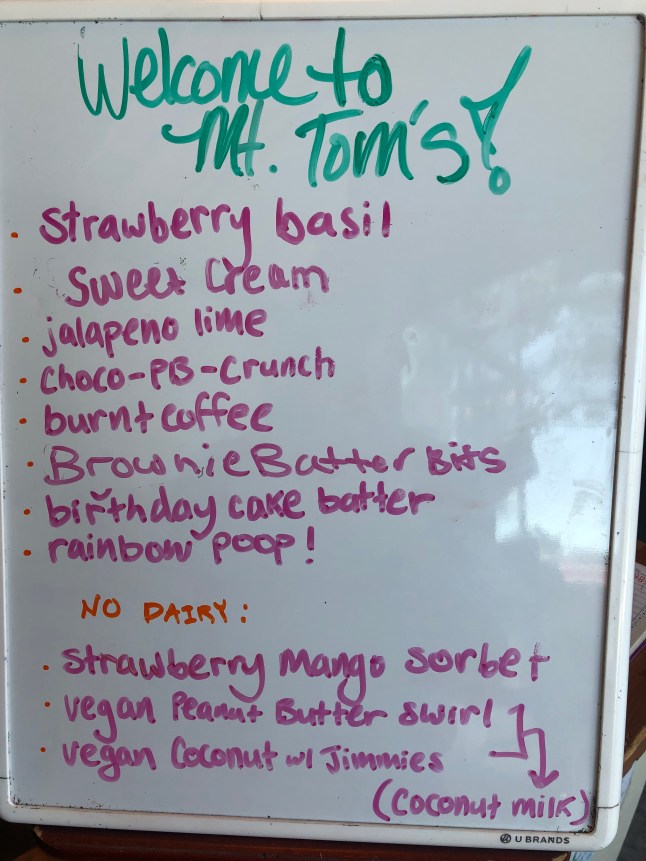 Welcome to
Mt. Tom's!
• strawberry basil
• Sweet Cream
• jalapeno lime
• choco-PB-crunch
• burnt coffee
• Brownie Batter Bits
• birthday cake batter
• rainbow poop!
NO DAIRY:
• strawberry Mango sorbet
• vegan Peanut Butter swirl
• vegan Coconut w/ Jimmies
(Coconut milk)
U BRANDS